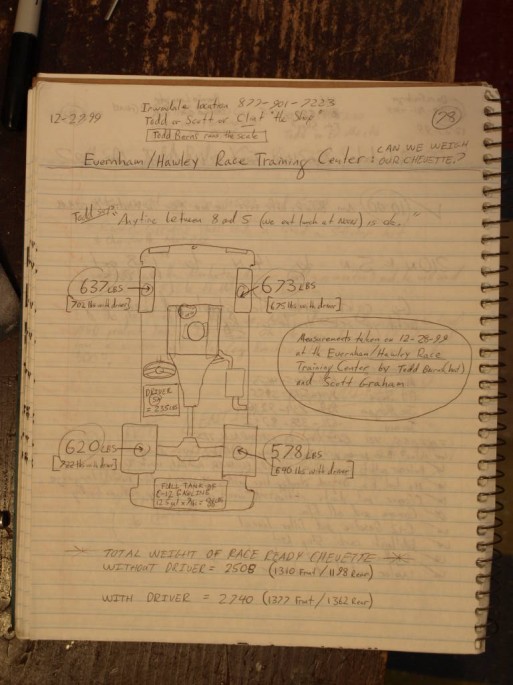 12-27-99
Irwindale location 877-901-7223
Todd or Scott or Clint "the Shop"
Todd Bernt runs the scale
78
Evernham/Hawley Race Training Center:
CAN WE WEIGH
OUR CHEVETTE?
Anytime between 8 and 5 (we eat lunch at Noon) is ok."
637 LBS
[702 lbs with driver]
673 LBS
[675 lbs with driver]
Measurements taken on 12-28-99
at the Evernham/Hawley Race
Training Center by Todd Bernt
and Scott Graham
DRIVER
= 235 LBS
620 LBS
[722 lbs w/driver]
578 LBS
[640 lbs with driver]
FULL TANK OF
GASOLINE
TOTAL WEIGHT OF RACE READY CHEVETTE
WITHOUT DRIVER = 2508 (1310 Front / 1198 Rear)
WITH DRIVER = 2740 (1377 Front / 1362 Rear)